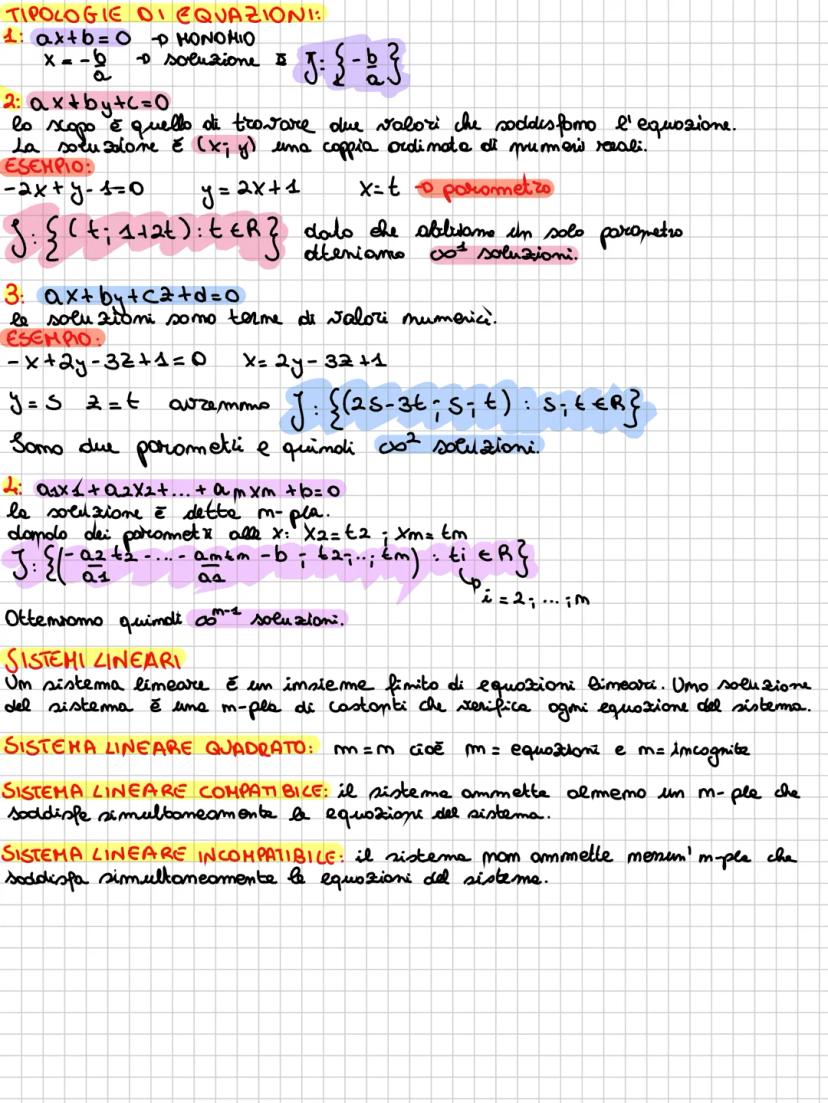 TIPOLOGIE DI EQUAZIONI:
1: ax+b=0 → MONOMIO
x = -b/a → soluzione è S: {-b/a}
2: ax+by+c=0
lo scopo è quello di trovare due valori che soddisfano l'equazione.
La soluzione è (x; y) una coppia ordinata di numeri reali.
ESEMPIO:
-2x+y-1=0 y=2x+1 x=t → parametro
S: {(t; 1+2t): t∈R} dato che abbiamo un solo parametro
otteniamo ∞¹ soluzioni.
3: ax+by+cz+d=0
le soluzioni sono terne di valori numerici.
ESEMPIO:
-x+2y-3z+1=0 x=2y-3z+1
y=s z=t avremmo S: {(2s-3t; s; t) : s; t∈R}
Sono due parametri e quindi ∞² soluzioni.
4: a1x1+a2x2+...+anxn+b=0
la soluzione è detta n-pla.
dando dei parametri alle x: x2=t2 ; xn=tn
S: {(-a2/a1 t2 -...- antn/a1 -b ; t2;..; tn) : ti∈R}
↳ i=2; ...; n
Otteniamo quindi ∞ⁿ⁻¹ soluzioni.
SISTEMI LINEARI
Un sistema lineare è un insieme finito di equazioni lineari. Una soluzione
del sistema è una n-pla di costanti che verifica ogni equazione del sistema.
SISTEMA LINEARE QUADRATO: m=n cioè m = equazioni e n= incognite
SISTEMA LINEARE COMPATIBILE: il sistema ammette almeno un n-pla che
soddisfa simultaneamente le equazioni del sistema.
SISTEMA LINEARE INCOMPATIBILE: il sistema non ammette nessun' n-pla che
soddisfa simultaneamente le equazioni del sistema.